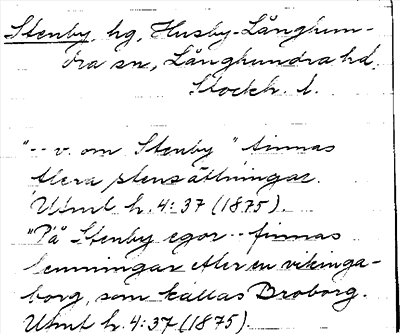 Stenby, hg, Husby-Långhun-
dra sn, Långhundra hd,
Stockh. l.
"-- v. om Stenby" finnas
flera stensättningar.
Utml h. 4:37 (1875).
"På Stenby egor -- finnas
lemningar efter en vikinga-
borg, som kallas Broborg.
Utml h. 4:37 (1875).